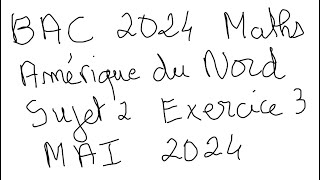 BAC 2024 Maths
Amérique du Nord
Sujet 2 Exercice 3
MAI 2024